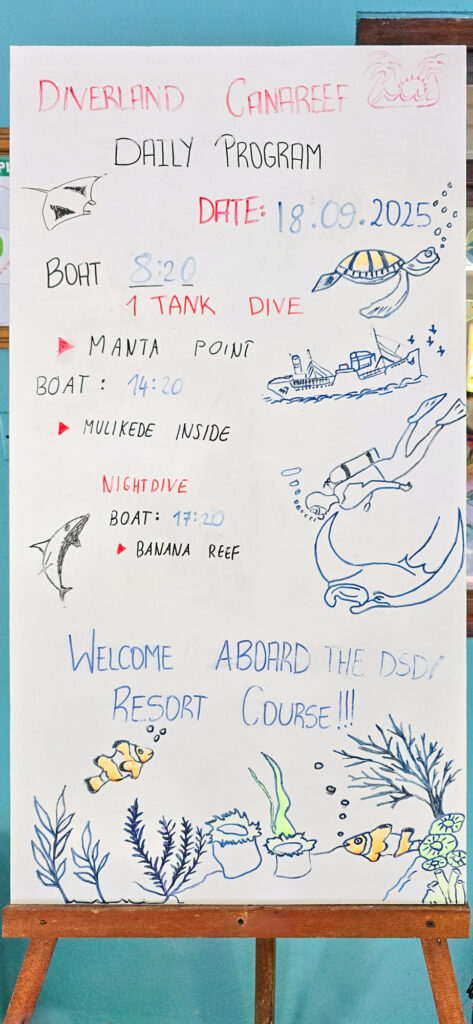 DIVERLAND CANAREEF
DAILY PROGRAM
DATE: 18.09.2025
BOAT 8:20
1 TANK DIVE
MANTA POINT
BOAT: 14:20
MULIKEDE INSIDE
NIGHTDIVE
BOAT: 17:20
BANANA REEF
WELCOME ABOARD THE DSD/
RESORT COURSE!!!